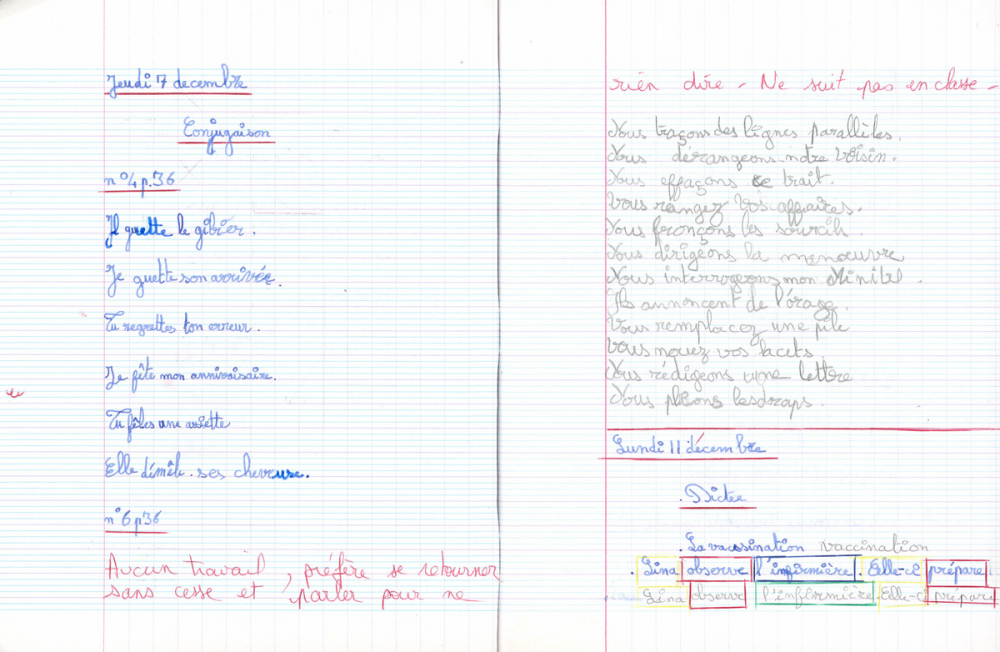 Jeudi 7 decembre
Conjugaison
n°4 p.36
Il guette le gibier.
Je guette son arrivée.
Tu regrettes ton erreur.
Je fête mon annivaisaire.
Tu fêles une assiette
Elle démêle ses cheveuse.
n°6 p36
Aucun travail, préfère se retourner
sans cesse et parler pour ne
rien dire - Ne suit pas en classe -
Nous traçons des lignes parallèles.
Nous dérangeons notre voisin.
Nous effaçons ce trait.
Vous rangez vos affaires.
Nous fronçons les sourcils.
Nous dirigeons la manœuvre
Nous interrogeons mon Minitel.
Ils annoncent de l'orage.
Vous remplacez une pile
Vous nouez vos lacets
Nous rédigeons une lettre
Nous plions les draps.
Lundi 11 décembre
. Dictée
. La vacssination vaccination
. Lina observe l'infirmière. Elle-ci prépare
Lina observe l'infirmière. Elle-ci prépare